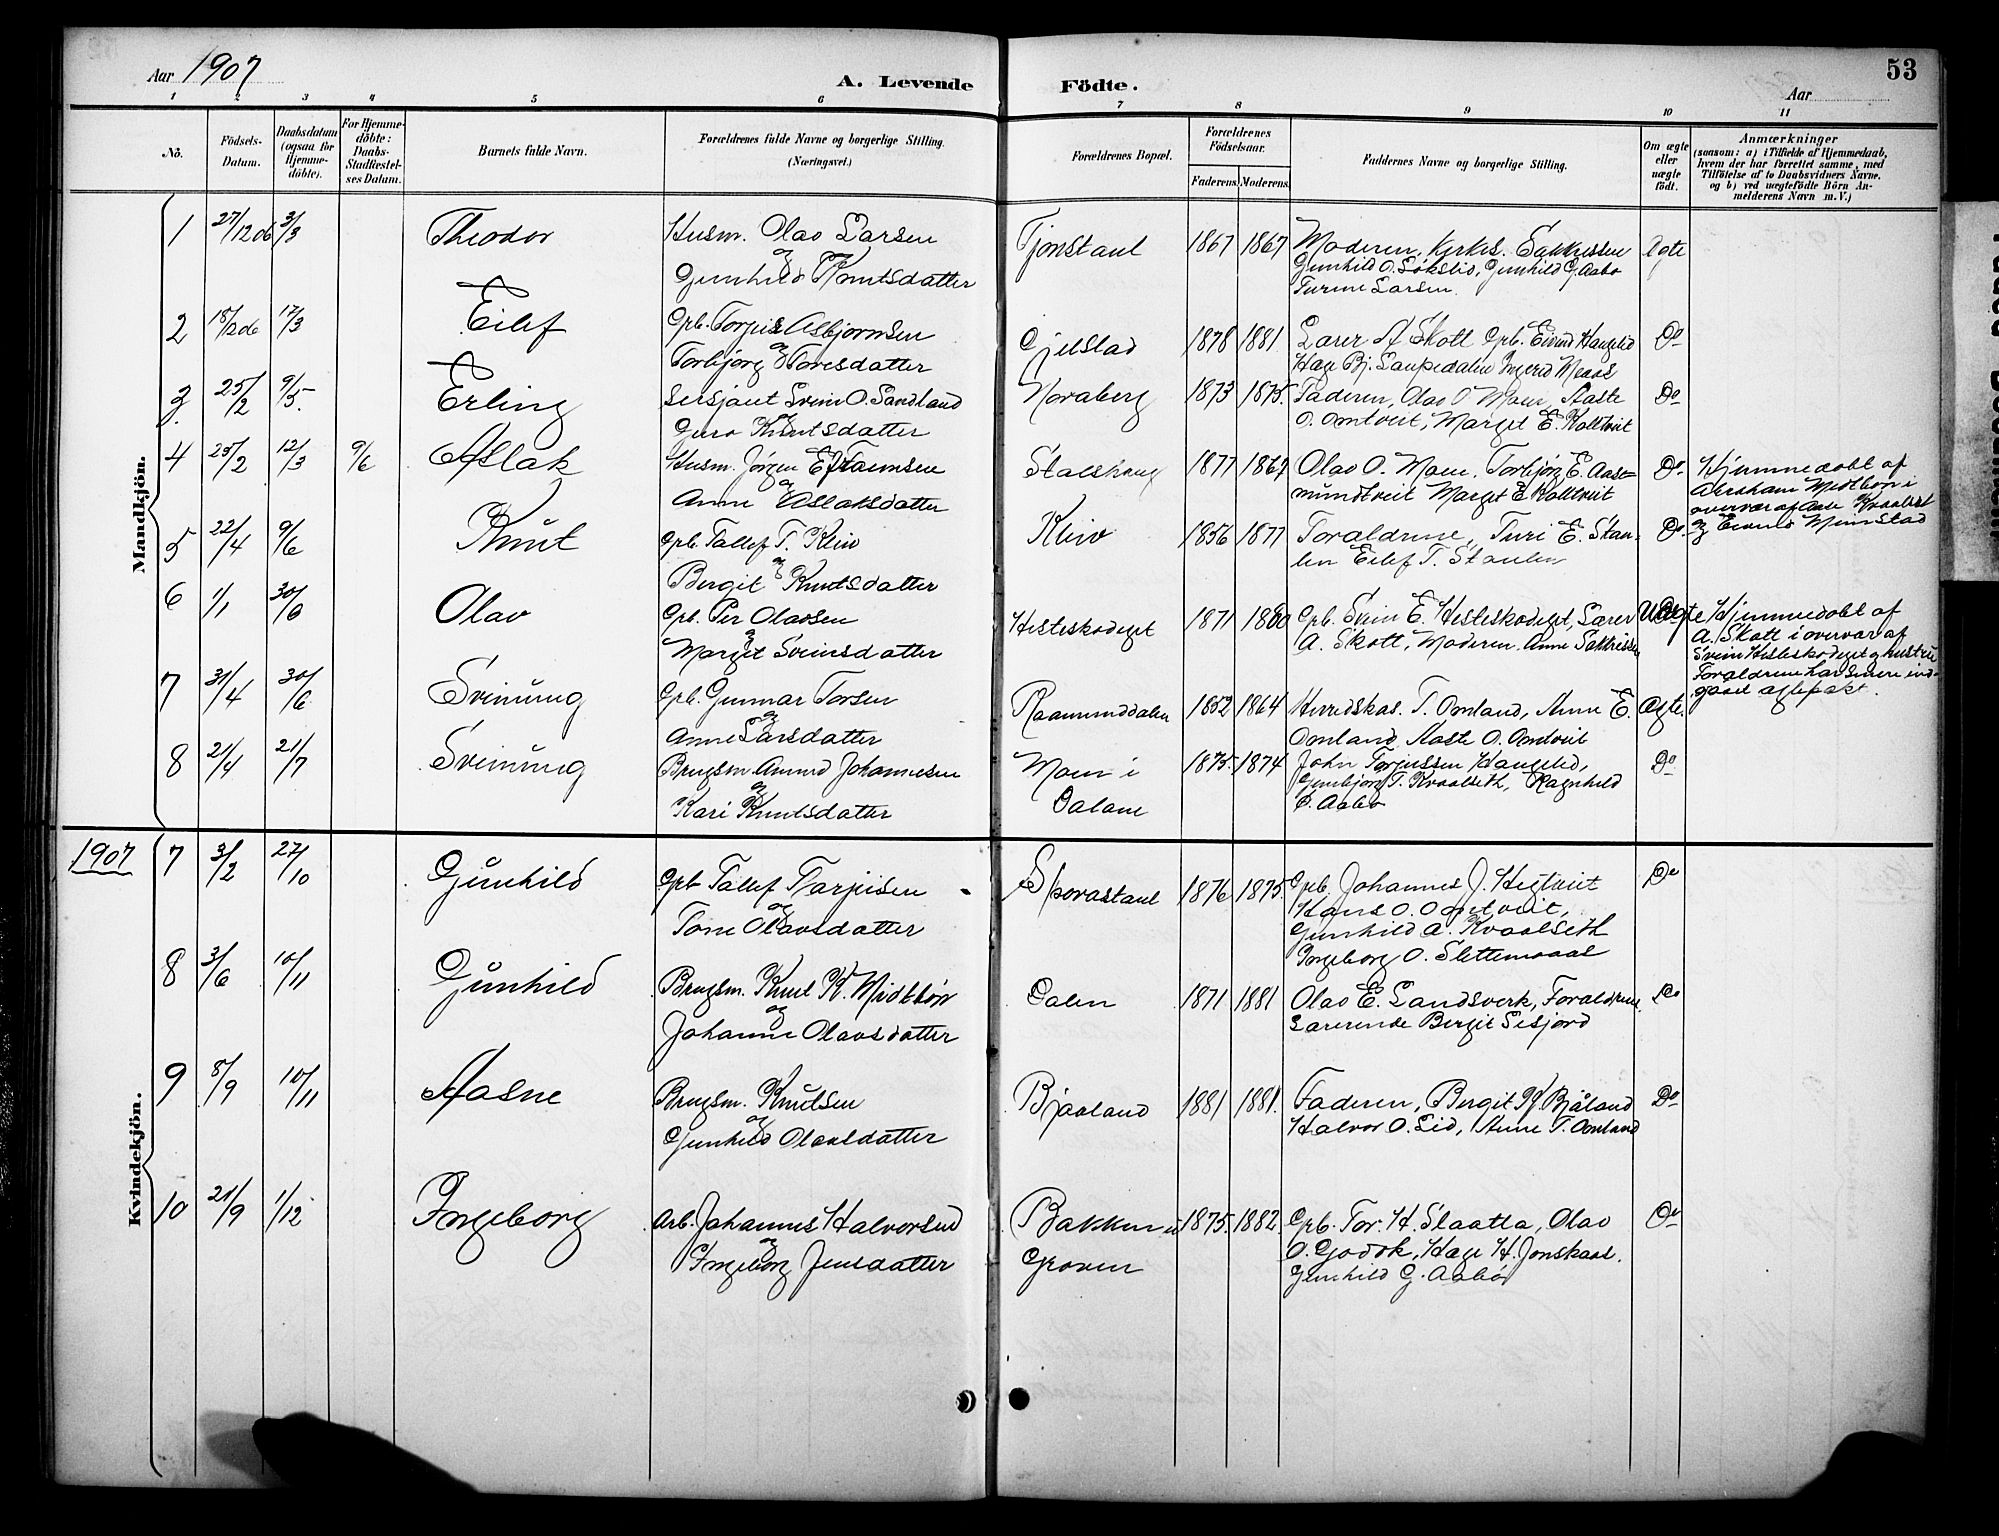 53
Aar 1907
A. Levende Födte.
Aar
1 2 3 4 5 6 7 8 9 10 11
No.
Födsels-
Datum.
Daabsdatum
(ogsaa för
Hjemme-
döbte).
For Hjemme-
döbte:
Daabs-
Stadfæstel-
ses Datum.
Barnets fulde Navn.
Forældrenes fulde Navne og borgerlige Stilling.
(Næringsvei.)
Forældrenes Bopæl.
Forældrenes
Födselsaar.
Faderens. Moderens.
Faddernes Navne og borgerlige Stilling.
Om ægte
eller
uægte
födt.
Anmærkninger
(saasom: a) i Tilfælde af Hjemmedaab,
hvem der har forrettet samme, med
Tilföielse af to Daabsvidners Navne.
og b) ved uægtefödte Börn An-
melderens Navn m. V.)
Mandkjön.
1 27/12 06 3/3 Theodor Husm. Olav Larsen
og
Gunhild Knutsdatter
Tjønstaul 1867 1867 Moderen, Kirkes. Sakkrissen
Gunhild O. Løkslid, Gunhild G. Aabø
Turine Larsen.
Ægte
2 18/12 06 17/3 Eilef Gpb. Torjus Asbjørnsen
og
Torbjørg Toresdatter
Gjelstad 1878 1881 Lærer A Skott Gpb. Eivind Haugelid
Hæge Bj. Laupedalen Ingerid Moaas
Do
3 25/2 9/5. Erling Sersjant Svein O. Sandland
og
Guro Knutsdatter
Noraberg 1873 1875. Faderen, Olav O Moen, Aaste
O. Omtveit, Marget E. Kolltveit
Do
4 25/2 12/3 9/6 Aslak Husm. Jørgen Eftæmsen
og
Anne Aslaksdatter
Staalshaug 1877 1867 Olav O. Moen, Torbjørg E. Aas=
mundtveit Marget E. Kolltveit
Do. Hjemmedøbt af
Abraham Midtbøn i
overvær af Aase Kvaalset
og Eivind Meinstad
5 22/4 9/6 Knut Gpb. Tallef T. Kleiv
og
Bergit Knutsdatter
Kleiv 1856 1877 Forældrene, Turi E. Stau-
len Eilef T. Staulen
Do.
6 1/1 30/6 Olav Gpb. Per Olavsen
og
Marget Sveinsdatter
Hesteskodeget 1871 1880 Gpb. Svein E. Hesteskodeget, Lærer
A. Skott, Moderen. Anne Sakkrissen
Uægte Hjemmedøbt af
A. Skott i overvær af
Svein Hesteskodeget og hustru
Forældrene har senere ind-
gaaet ægtepakt.
7 31/4 30/6 Sveinung Gpb. Gunnar Torsen
og
Anne Larsdatter
Raamunddalen 1852 1864 Herredskas. T. Omland, Anne E.
Omland, Aaste O. Omtveit
Ægte.
8 21/4 21/7 Sveinung Brugsm. Amund Johannesen
og
Kari Knutsdatter
Moen i
Dalane
1875. 1874 John Torjussen Haugelid,
Gunbjørg T. Kvaalseth, Ragnhild
O. Aabø
Do
1907
Kvindekjön.
7 3/2 27/10 Gunhild Gpb Tallef Tarjeisen
og
Tone Olavsdatter
Skorastaul 1876 1875. Gpb. Johannes J. Hegtveit
Hans O. Omtveit,
Gunhild A. Kvaalseth
Ingeborg O. Slettemoaas
Do
8 3/6 10/11 Gunhild Brugsm. Knut K. Midtbøn
og
Johanne Olavsdatter
Dalen 1871 1881 Olav E. Landsverk, Forældrene
Lærerinde Bergit Seljord
Do
9 8/9 10/11 Aasne Brugsm. Knutsen
og
Gunhild Olavsdatter
Bjaaland 1881 1881. Faderen, Bergit K. Bjåland
Halvor O. Lid, Anne T. Omland
Do
10 21/9 1/12 Ingeborg Arb. Johannes Halvorsen
og
Ingeborg Jensdatter
Bakken i
Groven
1875. 1882. Gpb. Tor. H. Slaatta, Olav
O. Godøk, Hæge H. Jonskaas.
Gunhild G. Aabø
Do